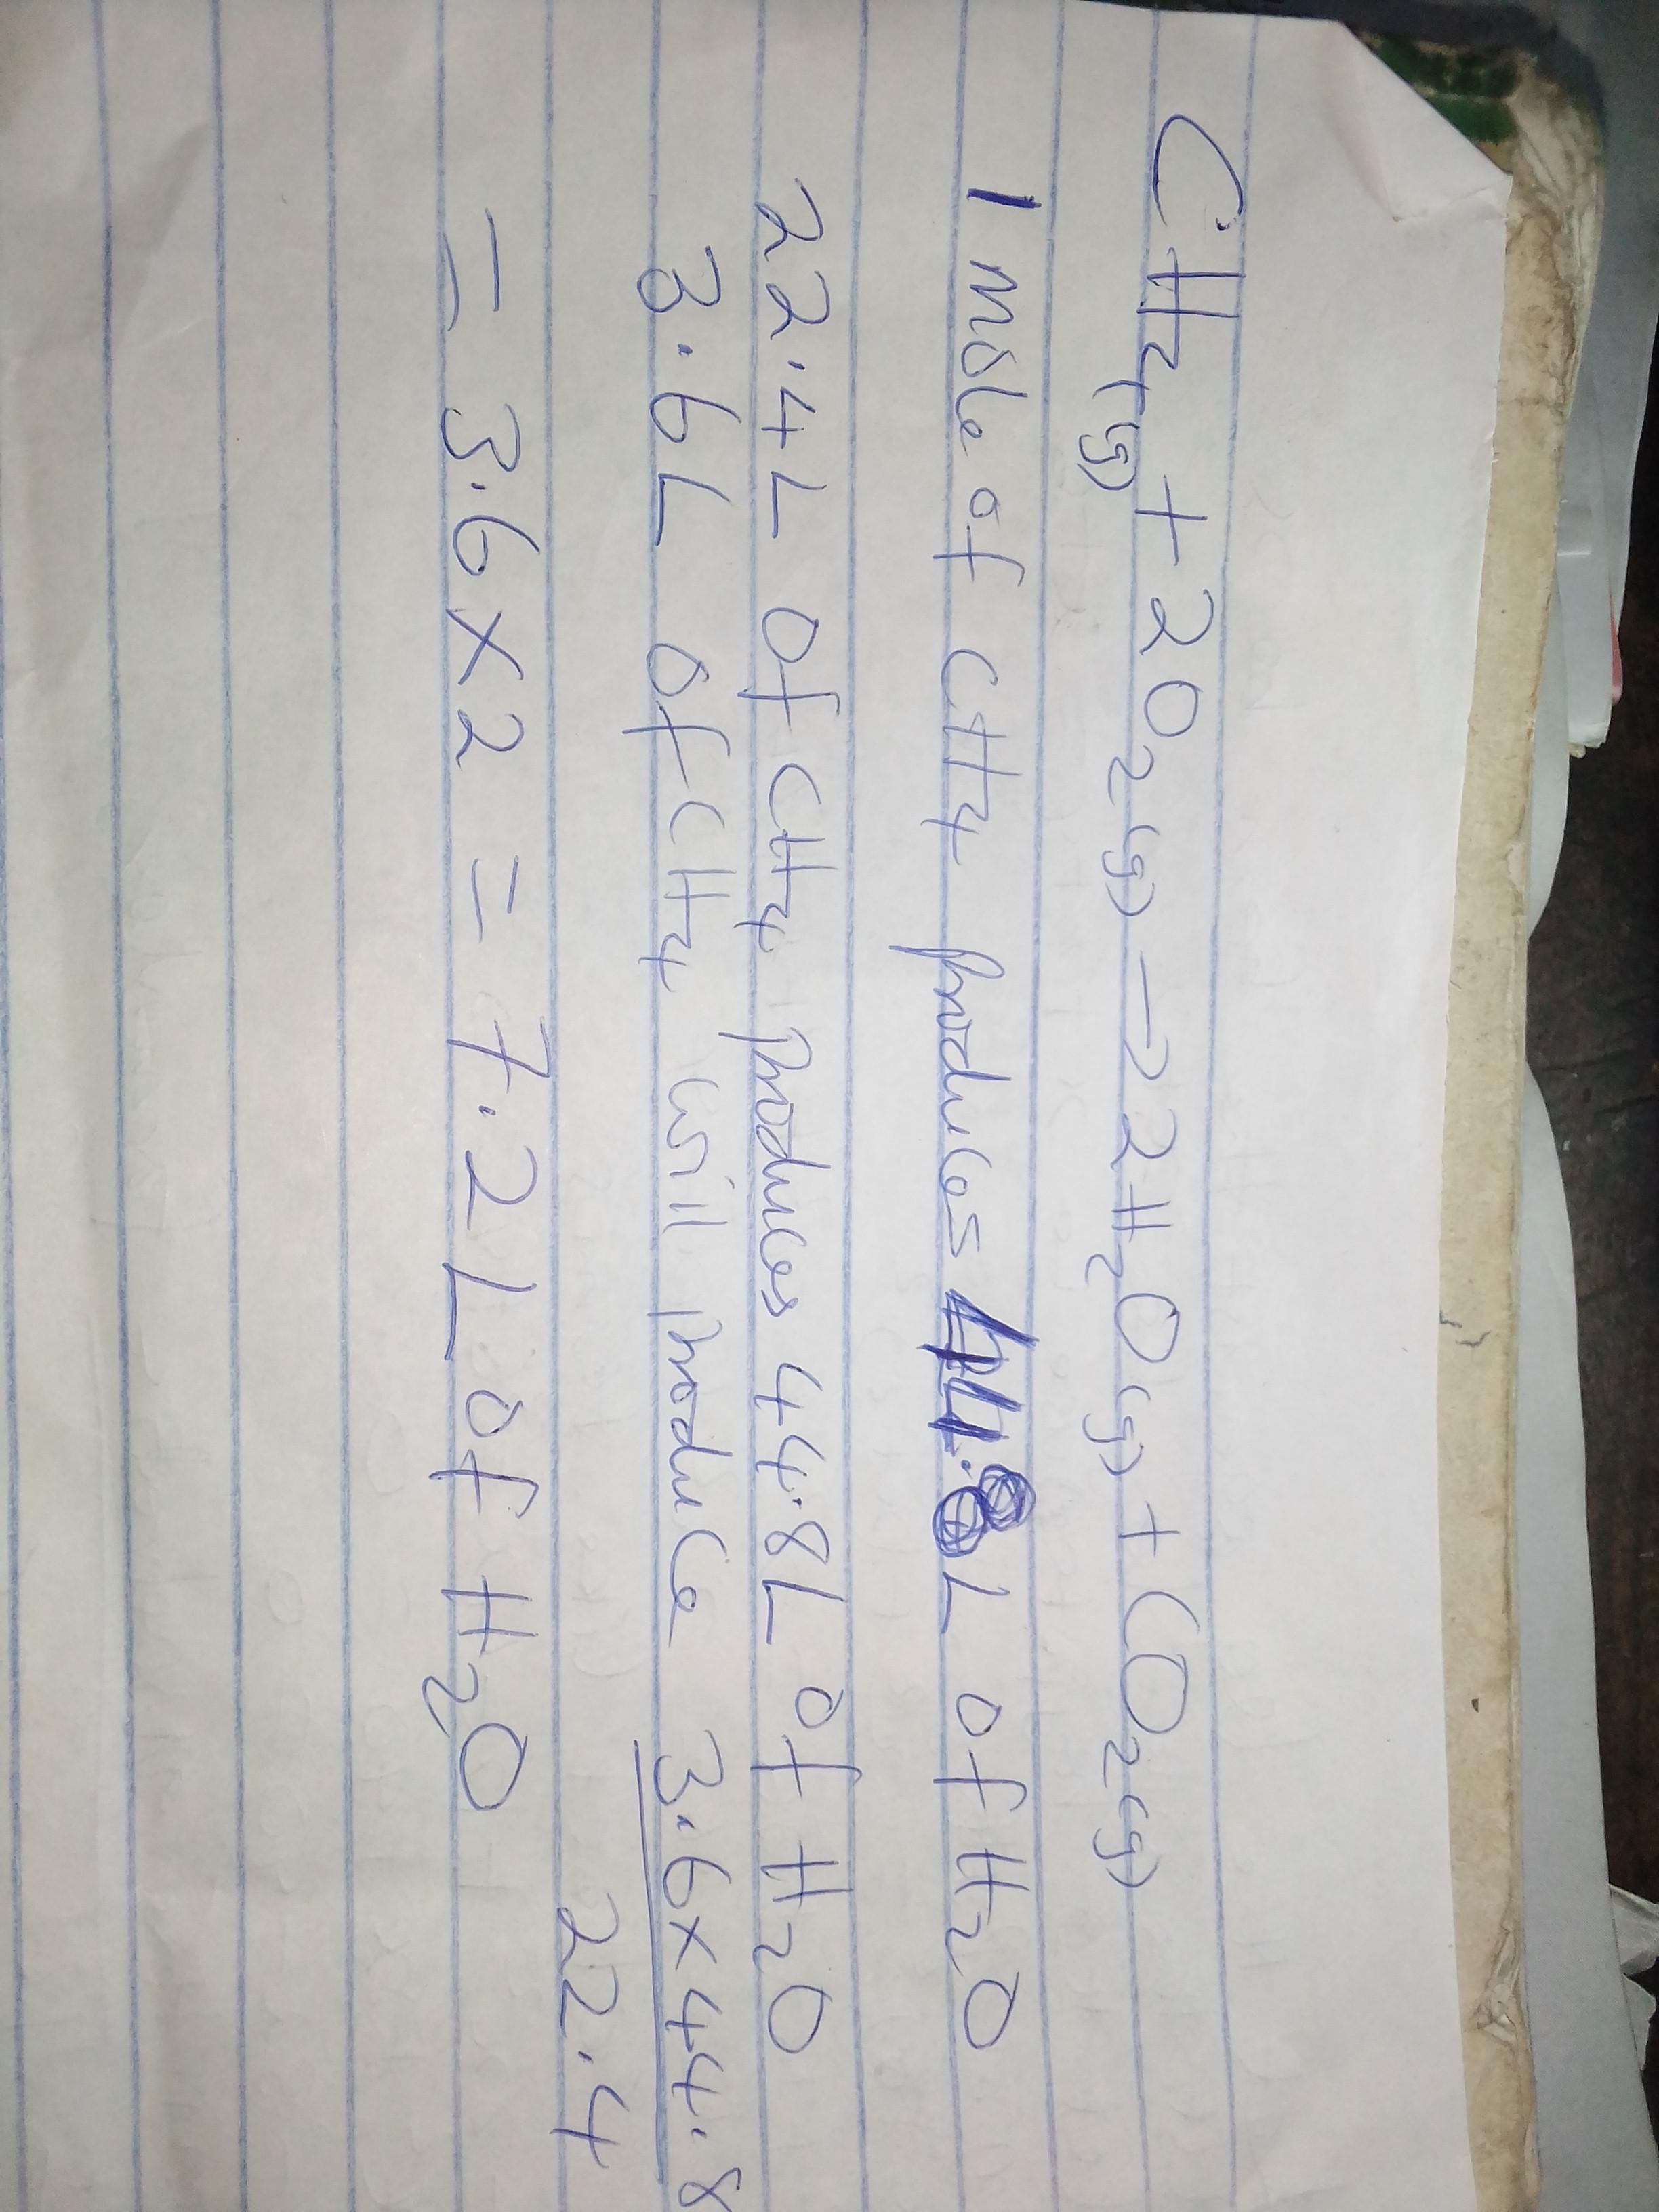 CH₄(g) + 2O₂(g) → 2H₂O(g) + CO₂(g)
1 mole of CH₄ produces 44.8L of H₂O
22.4L of CH₄ produces 44.8L of H₂O
3.6L of CH₄ will produce 3.6×44.8
22.4
= 3.6×2 = 7.2L of H₂O